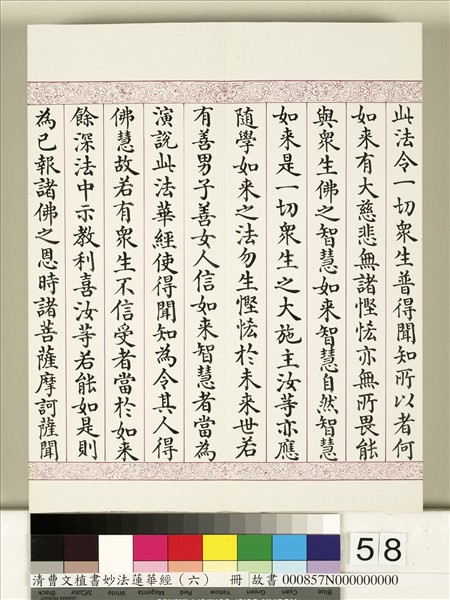 此法令一切衆生普得聞知所以者何
如来有大慈悲無諸慳恡亦無所畏能
與衆生佛之智慧如来智慧自然智慧
如来是一切衆生之大施主汝等亦應
隨學如来之法勿生慳恡於未来世若
有善男子善女人信如来智慧者當為
演說此法華經使得聞知為令其人得
佛慧故若有衆生不信受者當於如来
餘深法中示教利喜汝等若能如是則
為已報諸佛之恩時諸菩薩摩訶薩聞
58
Black
3/Color
White
Magenta
Red
Yellow
Green
Cyan
Blue
清曹文植書妙法蓮華經（六） 冊 故書 000857N000000000